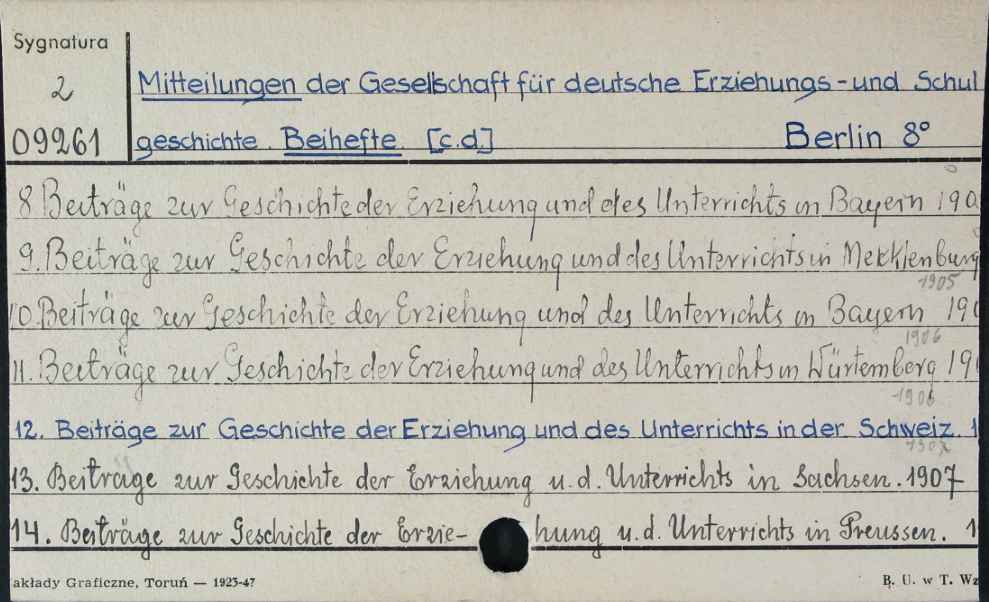 Sygnatura
2
09261
Mitteilungen der Gesellschaft für deutsche Erziehungs-und Schul
geschichte. Beihefte. [c.d.] Berlin 8°
8 Beiträge zur Geschichte der Erziehung und des Unterrichts in Bayern 190
9. Beiträge zur Geschichte der Erziehung und des Unterrichts in Mecklenburg
1905
10. Beiträge zur Geschichte der Erziehung und des Unterrichts in Bayern 190
1906
11. Beiträge zur Geschichte der Erziehung und des Unterrichts in Würtemberg 19
1906
12. Beiträge zur Geschichte der Erziehung und des Unterrichts in der Schweiz. 1
13. Beiträge zur Geschichte der Erziehung u. d. Unterrichts in Sachsen. 1907
14. Beiträge zur Geschichte der Erzie-hung u. d. Unterrichts in Preussen. 1
akłady Graficzne, Toruń — 1923-47
B. U. w T. Wz